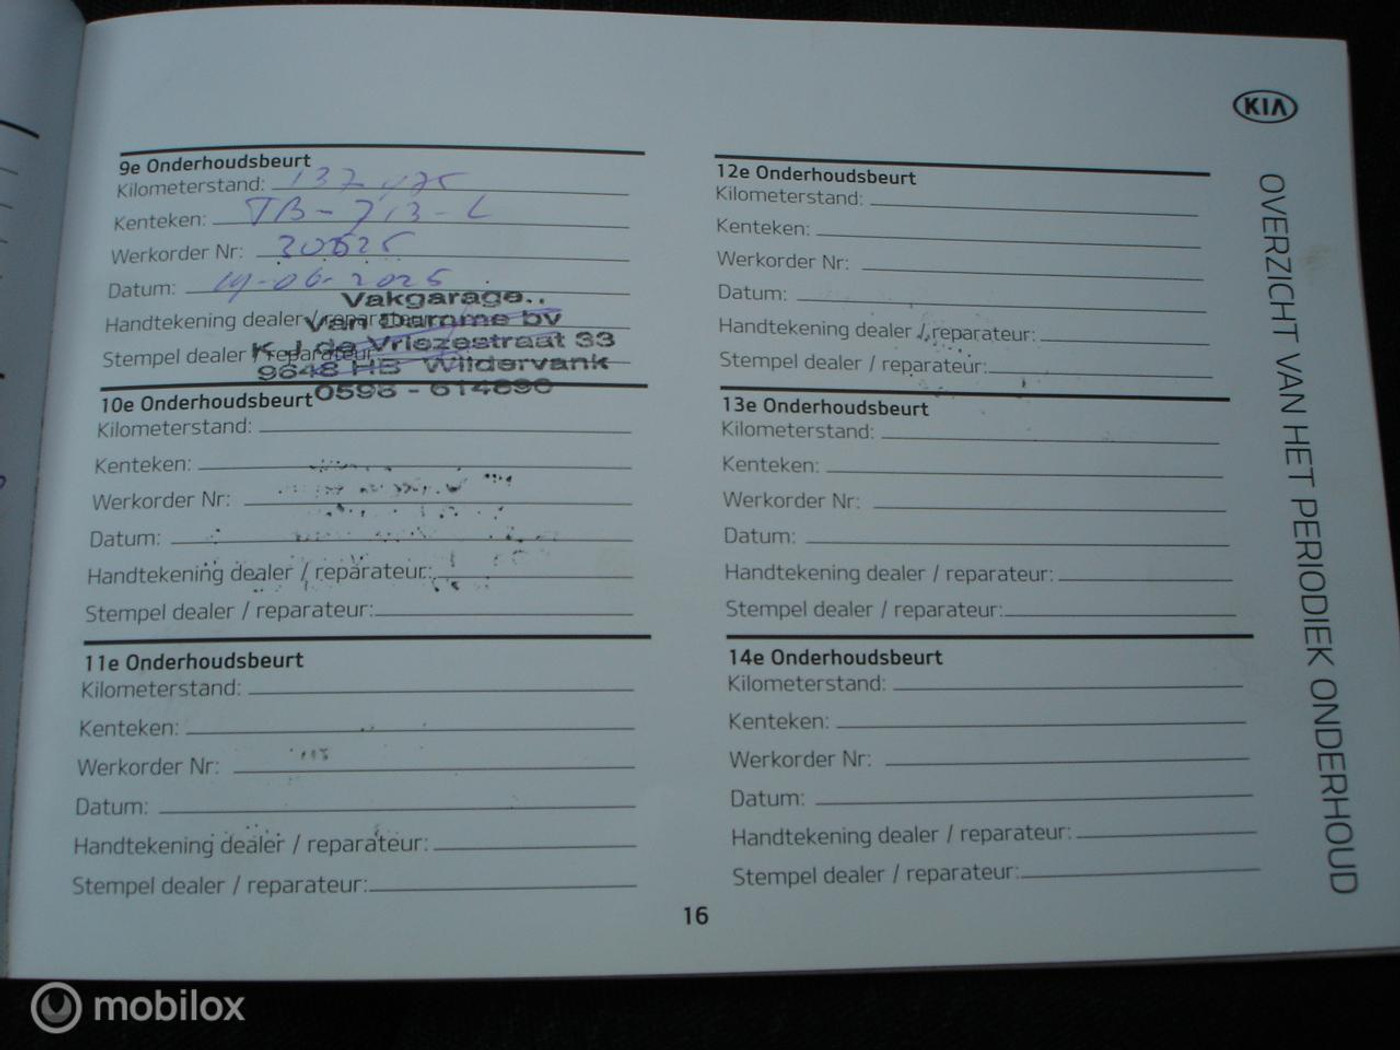 KIA
OVERZICHT VAN HET PERIODIEK ONDERHOUD
9e Onderhoudsbeurt
Kilometerstand: 137.475
Kenteken: TB-713-L
Werkorder Nr: 30625
Datum: 19-06-2025
Handtekening dealer / reparateur:
Stempel dealer / reparateur:
Vakgarage..
Van Damme bv
K.J. de Vriezestraat 33
9648 HB Wildervank
0598 - 614890
10e Onderhoudsbeurt
Kilometerstand:
Kenteken:
Werkorder Nr:
Datum:
Handtekening dealer / reparateur:
Stempel dealer / reparateur:
11e Onderhoudsbeurt
Kilometerstand:
Kenteken:
Werkorder Nr:
Datum:
Handtekening dealer / reparateur:
Stempel dealer / reparateur:
12e Onderhoudsbeurt
Kilometerstand:
Kenteken:
Werkorder Nr:
Datum:
Handtekening dealer / reparateur:
Stempel dealer / reparateur:
13e Onderhoudsbeurt
Kilometerstand:
Kenteken:
Werkorder Nr:
Datum:
Handtekening dealer / reparateur:
Stempel dealer / reparateur:
14e Onderhoudsbeurt
Kilometerstand:
Kenteken:
Werkorder Nr:
Datum:
Handtekening dealer / reparateur:
Stempel dealer / reparateur:
16
mobilox